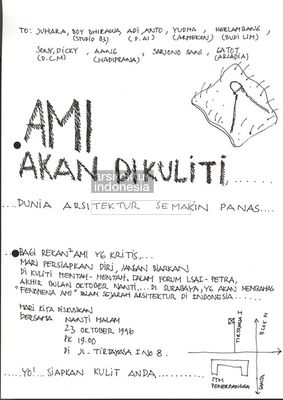 TO: JUHARA, BOY DHIRAWA, ADI, ANTO, YUDHA, HORLAMBANG,
(STUDIO 83) (P.AI) (ARMEKON) (BUDI LIM)
SONY, DICKY, AANG, SARJONO SANI, GATOT
(D.C.M) (HADIPRANA) (ARCADIA)
.AMI
AKAN DIKULITI,......
arsitektur
indonesia
....DUNIA ARSITEKTUR SEMAKIN PANAS....
BAGI REKAN² AMI YG KRITIS,...
MARI PERSIAPKAN DIRI, JANGAN BIARKAN
DI KULITI MENTAH-MENTAH. DALAM FORUM LSAI-PETRA,
AKHIR BULAN OKTOBER NANTI,... DI SURABAYA, YG AKAN MEMBAHAS
"FENOMENA AMI" DLAM SEJARAH ARSITEKTUR DI INDONESIA......
MARI KITA DISKUSIKAN
BERSAMA NANTI MALAM
23 OKTOBER 1996
PK 19.00
DI JL. TIRTAYASA I NO 8.
....YO'... SIAPKAN KULIT ANDA........
TIRTAYASA I
BLOK M
STM
PENERBANGAN